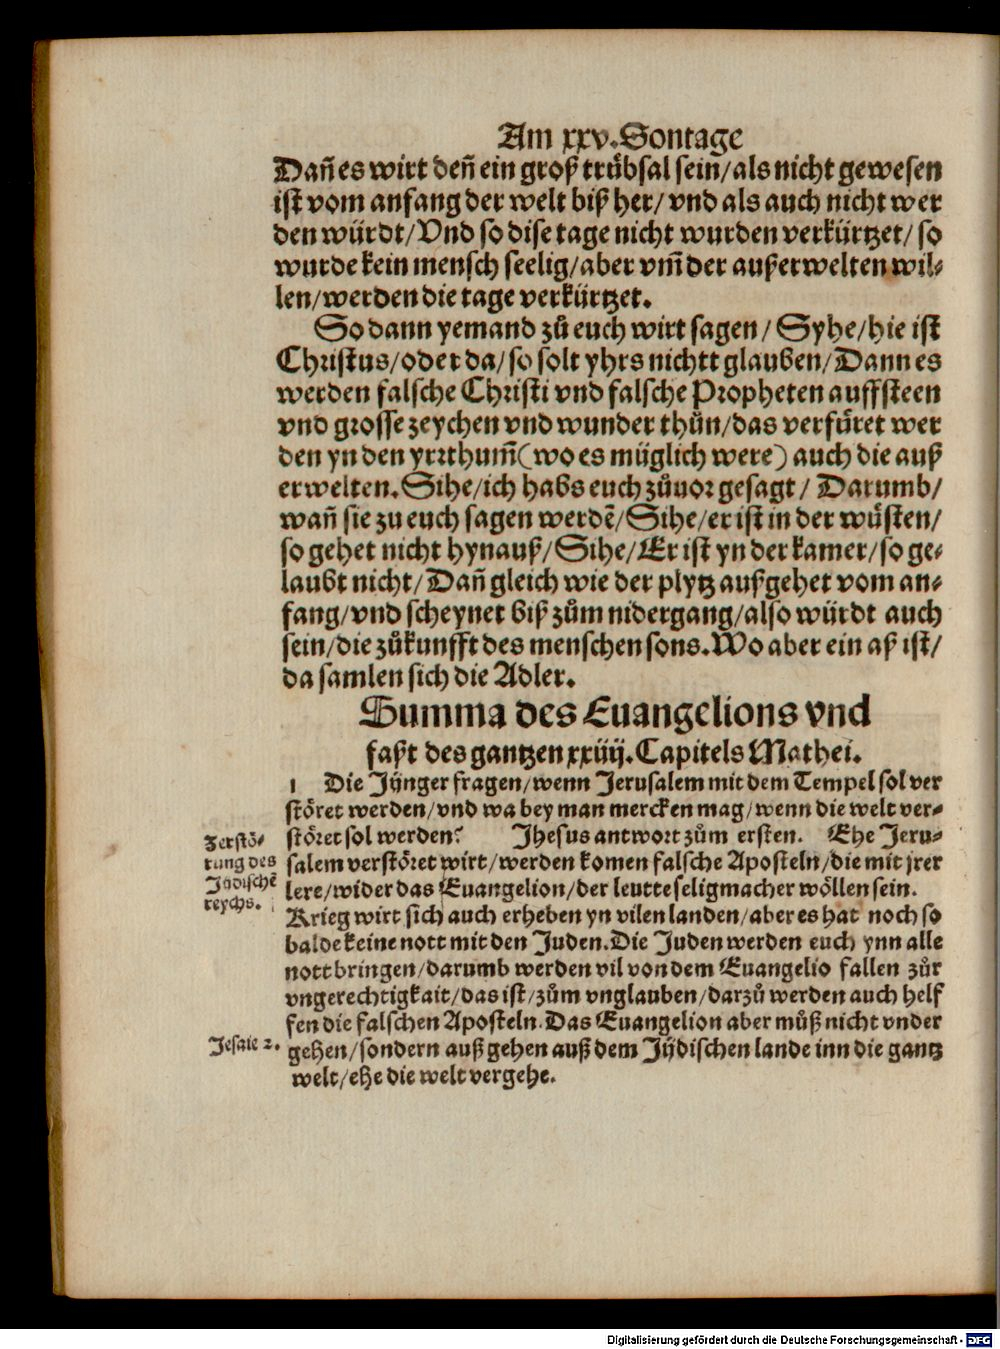 Am xxv. Sontage
Dañ es wirt deñ ein groß trůbsal sein/als nicht gewesen
ist vom anfang der welt biß her/ vnd als auch nicht wer
den würdt/Vnd so dise tage nicht wurden verkürtzet/ so
wurde kein mensch seelig/aber vm̃ der außerwelten wil⸗
len/werden die tage verkürtzet.
So dann yemand zů euch wirt sagen/ Syhe/hie ist
Christus/oder da/so solt yhrs nichtt glauben/Dann es
werden falsche Christi vnd falsche Propheten auffsteen
vnd grosse zeychen vnd wunder thůn/das verfüret wer
den yn den yrrthum̃(wo es müglich were) auch die auß
erwelten. Sihe/ich habs euch zůuor gesagt/ Darumb/
wañ sie zu euch sagen werdẽ/Sihe/er ist in der wüsten/
so gehet nicht hynauß/Sihe/Er ist yn der kamer/so ge⸗
laubt nicht/Dañ gleich wie der plytz außgehet vom an⸗
fang/vnd scheynet biß zům nidergang/also würdt auch
sein/die zůkunfft des menschen sons. Wo aber ein aß ist/
da samlen sich die Adler.
Summa des Euangelions vnd
faßt des gantzen xxiiij. Capitels Mathei.
1 Die Jünger fragen/wenn Jerusalem mit dem Tempel sol ver
störet werden/vnd wa bey man mercken mag/wenn die welt ver⸗
störet sol werden? Jhesus antwort zům ersten. Ehe Jeru⸗
salem verstöret wirt/werden komen falsche Aposteln/die mit jrer
lere/wider das Euangelion/der leutte seligmacher wöllen sein.
Krieg wirt sich auch erheben yn vilen landen/aber es hat noch so
balde keine nott mit den Juden. Die Juden werden euch ynn alle
nott bringen/darumb werden vil von dem Euangelio fallen zůr
vngerechtigkait/das ist/zům vnglauben/darzů werden auch helf
fen die falschen Aposteln. Das Euangelion aber můß nicht vnder
gehen/sondern auß gehen auß dem Jüdischen lande inn die gantz
welt/ehe die welt vergehe.
Zerstö⸗
rung des
Jüdischẽ
reychs.
Jesaie 2.
Digitalisierung gefördert durch die Deutsche Forschungsgemeinschaft - DFG